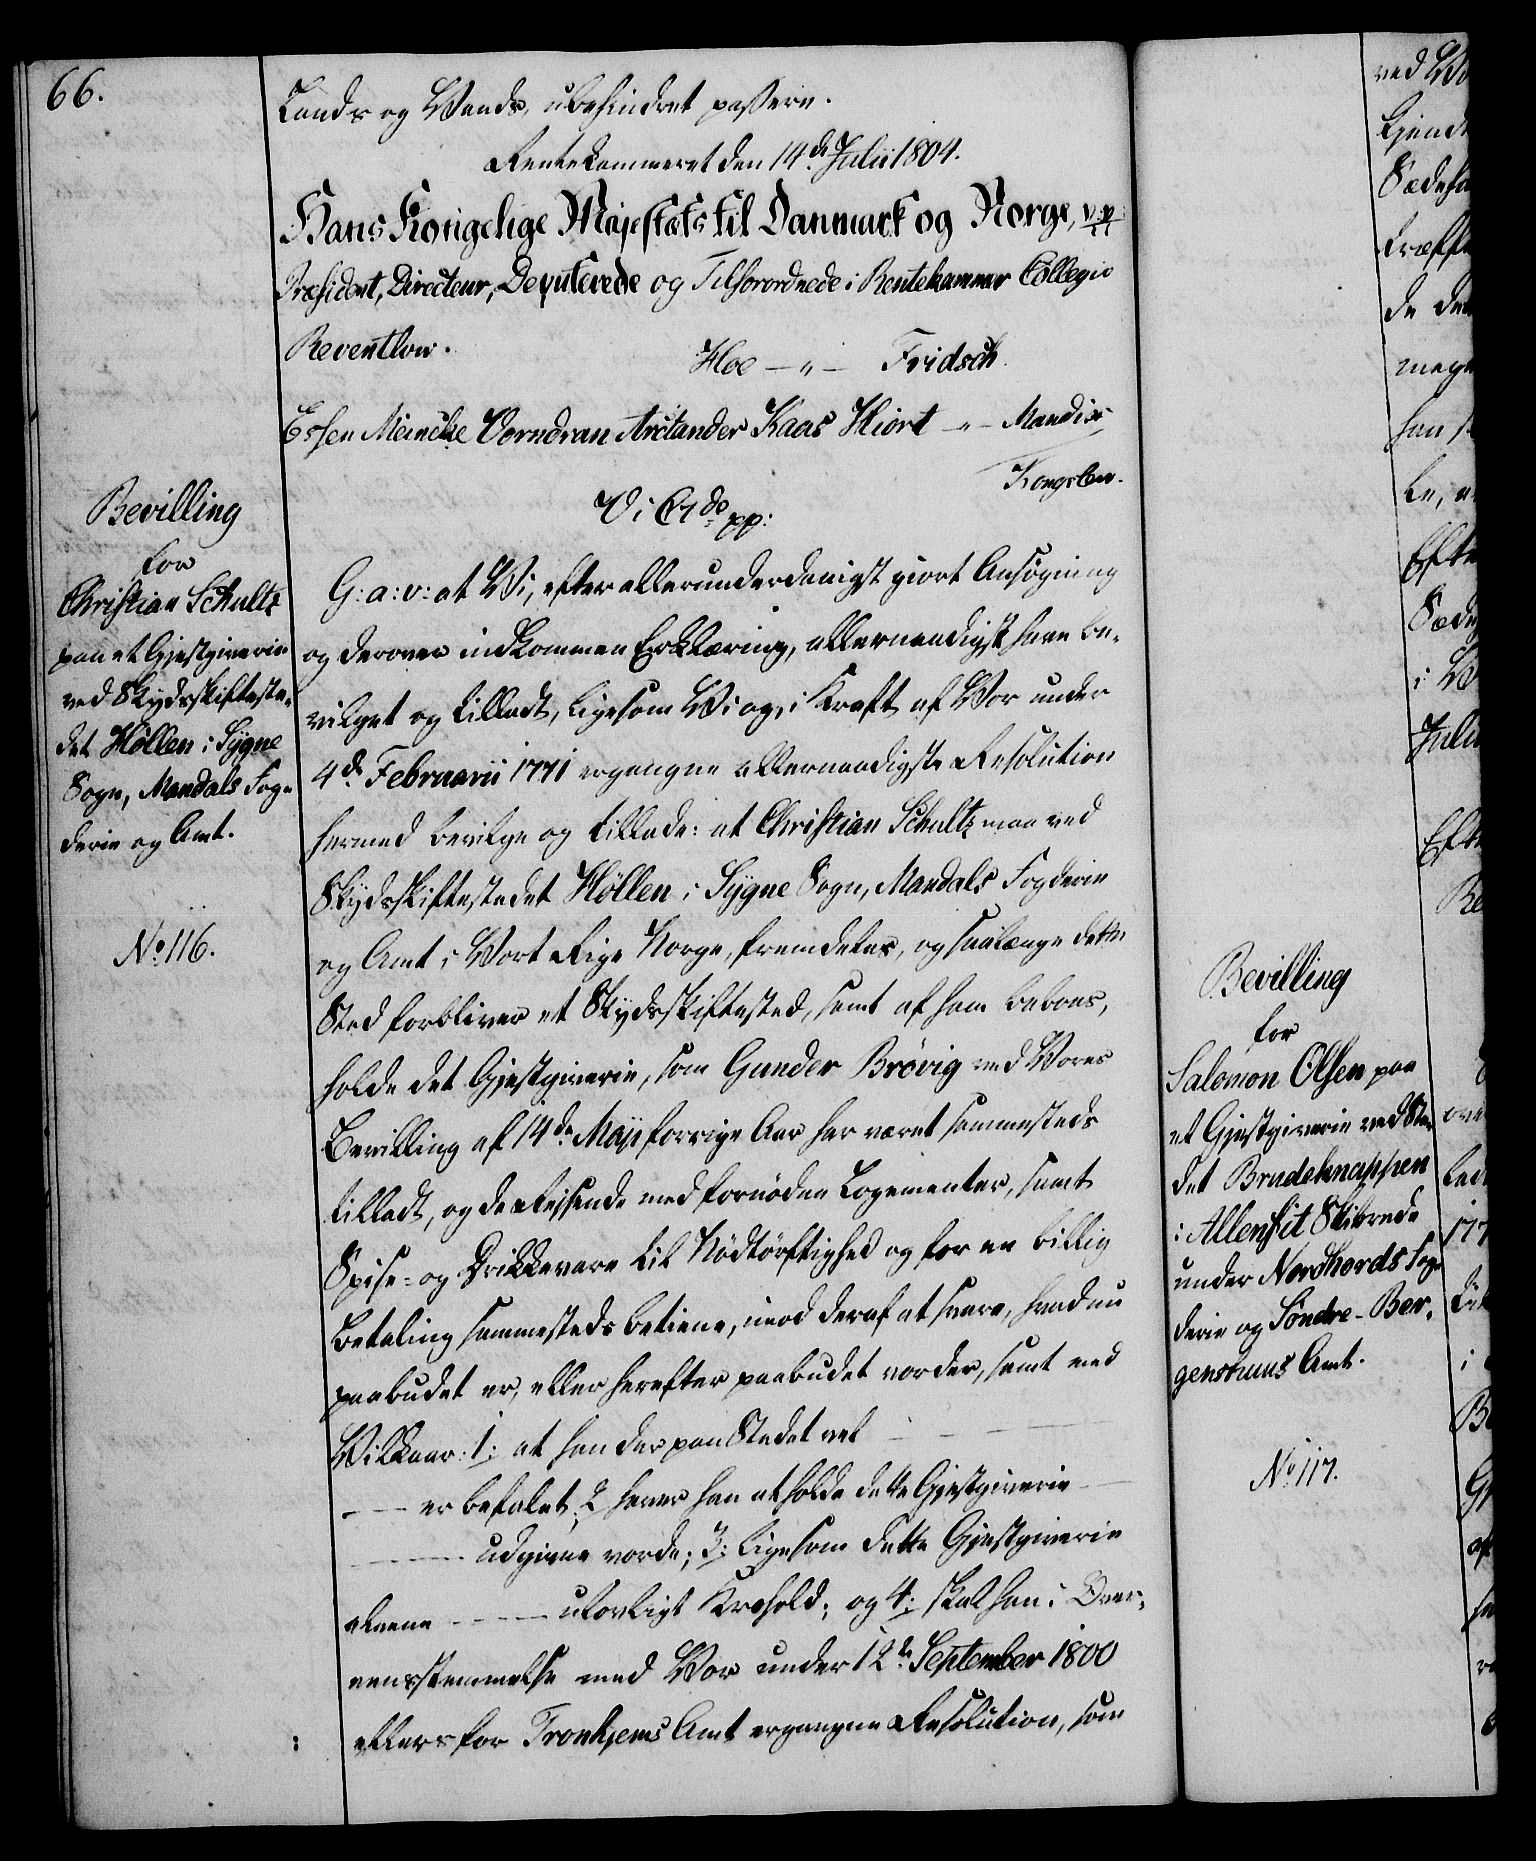 66.
Lands og Vands, ubehindret passere.
Rentekammeret den 14de Julii 1804.
Hans Kongelige Majestæts til Danmark og Norge, v: v:
Præsident, Directeur, Deputerede og Tilforordnede i Rentekammer Collegio
Reventlow.
Hoe — " — Fridsch
Essen Meincke Vorndran Arctander Kaas Hiort — " — Mandix
Kongslew.
Vi C7de pp:
Bevilling
for
Christian Schultz
paa et Gjestgiverie
ved Skydsskifteste-
det Höllen i Sÿgne
Sogn, Mandals Fog-
derie og Amt.
No 116.
G: a: v: at Vi, efter allerunderdanigst giort Ansögning
og derover indkommen Erklæring, allernaadigst have be-
vilget og tilladt, ligesom Vi og, i Kraft af Vor under
4de Februarii 1771 ergangne allernaadigste Resolution
hermed bevilge og tillade: at Christian Schultz maa ved
Skydsskiftestedet Höllen i Sÿgne Sogn, Mandals Fogderie
og Amt i Vort Rige Norge, fremdeles, og saalænge dette
Sted forbliver et Skydsskiftested, samt af ham beboes,
holde det Gjestgiverie, som Gunder Brövig ved Vores
Bevilling af 14de Maji forrige Aar har været sammesteds
tilladt, og de Reisende med fornödne Logementer, samt
Spise- og Drikkevare til Nödtörftighed og for en billig
Betaling sammesteds betiene, imod deraf at svare, hvad nu
paabudet er, eller herefter paabudet vorder, samt med
Vilkaar: 1: at han der paa Stedet vel — — —
— — er befalet; 2 haver han at holde dette Gjestgiverie —
— — — udgivne vorde; 3: ligesom dette Gjestgiverie
alene — — — ulovligt Krohold; og 4: skal han i Over-
eensstemmelse med Vor under 12te September 1800
ellers for Tronhjems Amt ergangne Resolution, som
Bevilling
for
Salomon Olsen paa
et Gjestgiverie ved Ste-
det Brudeknappen
i Allenfit Skibrede
under Nordhords Fog-
derie og Söndre-Ber-
genshuus Amt.
No 117.